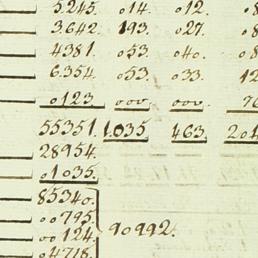 5245. 014. 012.
3642. 193. 027.
4381. 053. 040.
6354. 053. 033. 12
0123 000. 000. 76
55351. 1035 463. 204
28954.
01035.
85340.
00795. 90992.
00124.
04718.